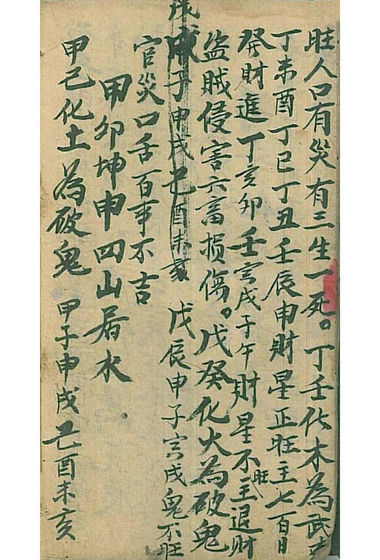 旺人口有災有三生一死。丁壬化木為武
丁未酉丁巳丁丑壬辰申財星正旺主七百日
發財進丁亥卯壬寅戌子午財星不旺主退財
盜賊侵害六畜損傷。戊癸化火為破鬼
戊子申戌己酉未亥 戊辰申子寅戌鬼不旺
官災口舌百事不吉
甲卯坤申四山屠水
甲己化土為破鬼 甲子申戌己酉未亥